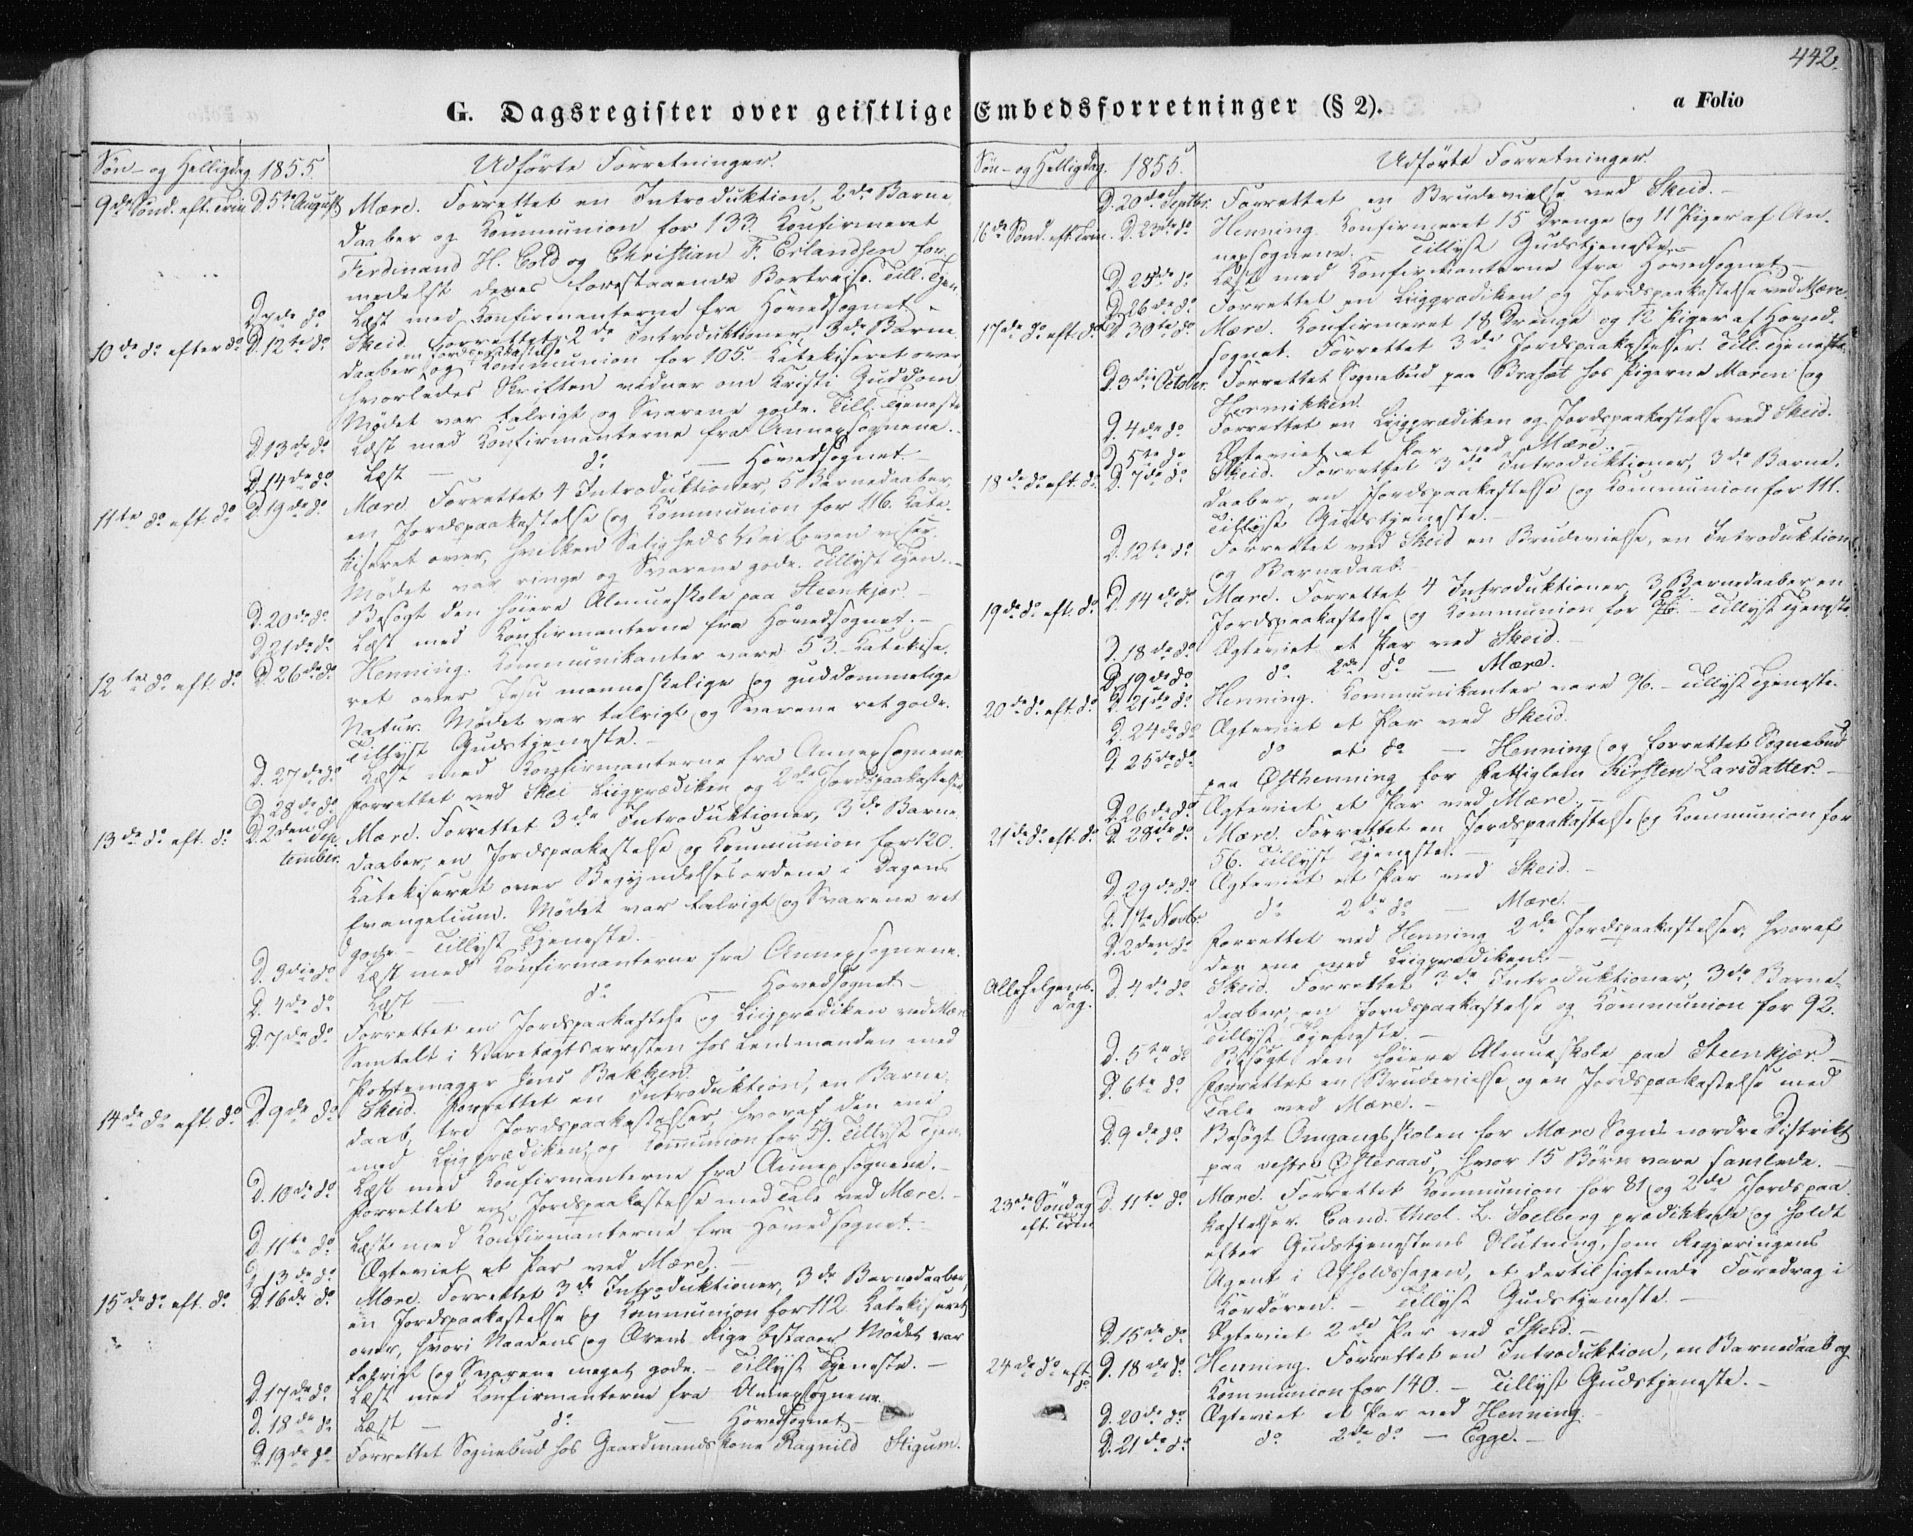 442.
G. Dagsregister over geistlige Embedsforretninger (§ 2).
a Folio
Søn- og Helligdag 1855. Udførte Forretninger.
9de Sønd. eft. Trin. D. 5te August Mære. Forrettet en Introduktion, 2de Barne
daaber og Kommunion for 133. Konfirmeret
Ferdinand H. Cold og Christian F. Erlandsen for-
medelst deres forestaaende Bortreise. Till. Tjen.
D. 7de do Læst med Konfirmanterne fra Hovedsognet.
10de do efter do D. 12te do Skeid. Forrettet 2de Introduktioner, 3de Barne
en Jordspaakastelse
daaber, og Kommunion for 105. Katekiseret over,
hvorledes Skriften vidner om Kristi Guddom
Mødet var talrigt og Svarene gode. Till. Tjeneste
D. 13de do Læst med Konfirmanterne fra Annexsognene.
D. 14de do Læst — do — Hovedsognet.
11te do eft. do D. 19de do Mære. Forrettet 4 Introduktioner, 5 Barnedaaber,
en Jordspaakastelse og Kommunion for 116. Kate-
kiseret over, hvilken Saligheds Vei Loven viser.
Mødet var ringe og Svarene gode. Tillyst Tjen.
D. 20de do Besøgt den høiere Almueskole paa Steenkjær.
D. 21de do Læst med Konfirmanterne fra Hovedsognet.
12te do eft. do D. 26de do Henning. Kommunikanter vare 53. Katekise-
ret over Jesu menneskelige og guddommelige
Natur. Mødet var talrigt og Svarene ret gode.
Tillyst Gudstjeneste.
D. 27de do Læst med Konfirmanterne fra Annexsognene
D. 28de do Forrettet ved Skei Liigprædiken og 2de Jordspaakastelser
13de do eft. do D. 2den Sep- Mære. Forrettet 3de Introduktioner, 3de Barne
tember. daaber, en Jordspaakastelse og Kommunion for 120.
Katekiseret over Begyndelsesordene i Dagens
Evangelium. Mødet var talrigt og Svarene ret
gode. — Tillyst Tjeneste.
D. 3die do Læst med Konfirmanterne fra Annexsognene.
D. 4de do Læst — do — Hovedsognet
D. 7de do Forrettet en Jordspaakastelse og Liigprædiken ved Mære
Samtalt i Varetægtsarresten hos Lensmanden med
Pottemager Jens Bakken.
14de do eft. do D. 9de do Skeid. Forrettet en Introduktion, en Barne-
daab, tre Jordspaakastelser, hvoraf den ene
med Liigprædiken, og Kommunion for 59. Tillyst Tjen.
D. 10de do Læst med Konfirmanterne fra Annexsognene.
Forrettet en Jordspaakastelse med Tale ved Mære.
D. 11te do Læst med Konfirmanterne fra Hovedsognet.
D. 13de do Ægteviet et Par ved Mære.
15de do eft. do D. 16de do Mære. Forrettet 3de Introduktioner, 3de Barnedaaber,
en Jordspaakastelse og Kommunion for 112. Katekiseret
over, hvori Naadens og Ærens Rige bestaaer. Mødet var
talrigt og Svarene meget gode. — Tillyst Tjeneste. —
D. 17de do Læst med Konfirmanterne fra Annexsognene.
D. 18de do Læst — do — Hovedsognet
D. 19de do Forrettet Sognebud hos Gaardmandskone Ragnild Stigum.
Søn- og Helligdag. 1855. Udførte Forretninger.
D. 20de Septbr. Forrettet en Brudevielse ved Skeid. —
16de Sønd. eft. Trin. D. 23de do Henning. Konfirmeret 15 Drenge og 11 Piger af An-
nexsognene. Tillyst Gudstjeneste. —
D. 25de do Læst med Konfirmanterne fra Hovedsognet —
D. 26de do Forrettet en Liigprædiken og Jordspaakastelse ved Mære.
17de do eft. do D. 30te do Mære. Konfirmeret 18 Drenge og 12 Piger af Hoved-
sognet. Forrettet 3de Jordspaakastelser. Till. Tjeneste.
D. 3die October. Forrettet Sognebud paa Brasæt hos Pigerne Maren og
Henrikken.
D. 4de do Forrettet en Liigprædiken og Jordspaakastelse ved Skeid.
D. 5te do Ægteviet et Par ved Mære.
18de do eft. do D. 7de do Skeid. Forrettet 3de Introduktioner, 3de Barne-
daaber, en Jordspaakastelse og Kommunion for 111.
Tillyst Gudstjeneste. —
D. 12te do Forrettet ved Skeid en Brudevielse, en Introduktion
og Barnedaab.
19de do eft. do D. 14de do Mære. Forrettet 4 Introduktioner, 3 Barnedaaber, en
102
Jordspaakastelse og Kommunion for 96. — Tillyst Tjeneste.
D. 18de do Ægteviet et Par ved Skeid.
D. 19de do do 2de do — Mære.
20de do eft. do D. 21de do Henning. Kommunikanter vare 96. — Tillyst Tjeneste.
D. 24de do Ægteviet et Par ved Skeid.
D. 25de do do et do — Henning og forrettet Sognebud
paa Østhenning for Fattiglem Kirsten Larsdatter.
D. 26de do Ægteviet et Par ved Mære. —
21de do eft. do D. 28de do Mære. Forrettet en Jordspaakastelse og Kommunion for
56. Tillyst Tjeneste. —
D. 29de do Ægteviet et Par ved Skeid. —
D. 1te Novbr. do 2de do — Mære.
D. 2den do Forrettet ved Henning 2de Jordspaakastelser, hvoraf
den ene med Liigprædiken. —
Allehelgens- D. 4de do Skeid. Forrettet 3de Introduktioner, 3de Barne-
dag. daaber, en Jordspaakastelse og Kommunion for 92.
Tillyst Tjeneste. —
D. 5te do Besøgt den høiere Almueskole paa Steenkjær.
D. 6te do Forrettet en Brudevielse og en Jordspaakastelse med
Tale ved Mære. —
D. 9de do Besøgt Omgangsskolen for Mære Sogns nordre Distrikt
paa vestre Østeraas, hvor 15 Børn vare samlede. —
23de Søndag D. 11te do Mære. Forrettet Kommunion for 81 og 2de Jordspaa-
eft. Trin. kastelser. Cand. theol. L. Solberg prædikkede og holdt
efter Gudstjenestens Slutning, som Regjeringens
Agent i Afholdssagen, et dertil sigtende Foredrag i
Kordøren. — Tillyst Gudstjeneste. —
D. 15de do Ægteviet 2de Par ved Skeid. —
24de do eft. do D. 18de do Henning. Forrettet en Introduktion, en Barnedaab og
Kommunion for 140. — Tillyst Gudstjeneste. —
D. 20de do Ægteviet et Par ved Henning. —
D. 21de do do 2de do — Egge. —